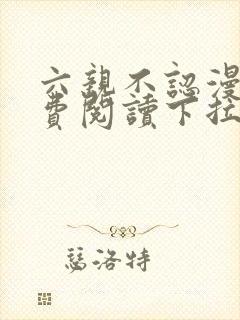 六親不認漫
費閱讀下拉
瑟洛特